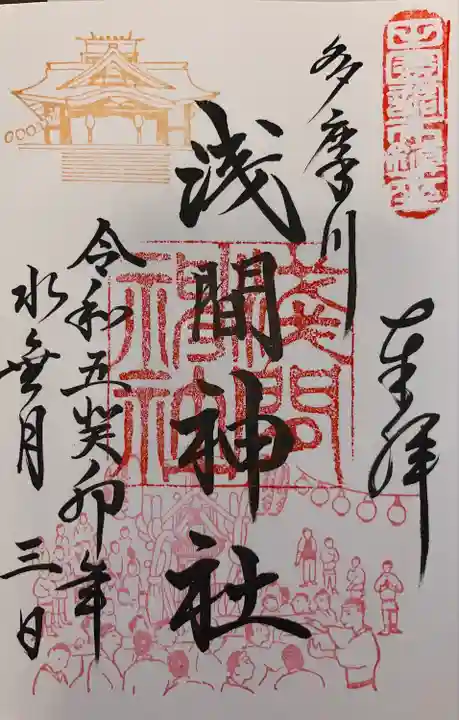 奉拝
多摩川
浅間神社
浅間神社
令和五癸卯年
水無月 三日